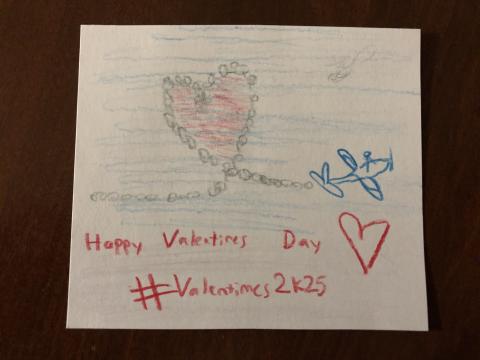 Happy Valentines Day
#Valentimes2k25